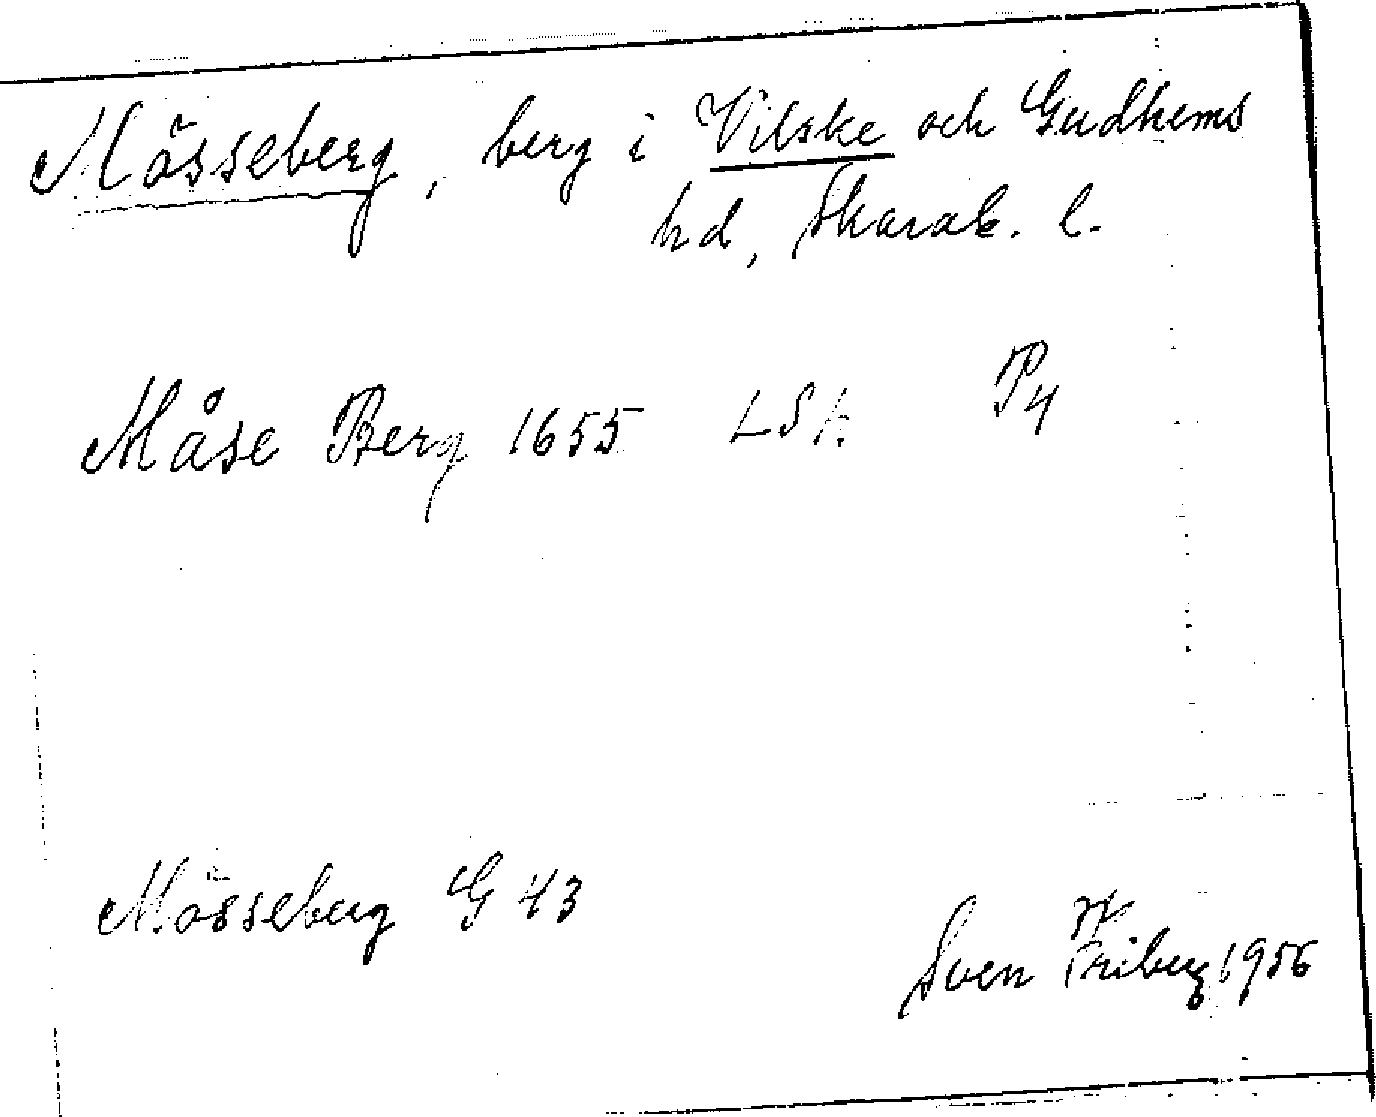 Mösseberg, berg i Vilske och Gudhems
hd, Skarab. l.
Måse Berg 1655 LSk P4
Mösseberg G 43
Sven Friberg 1956